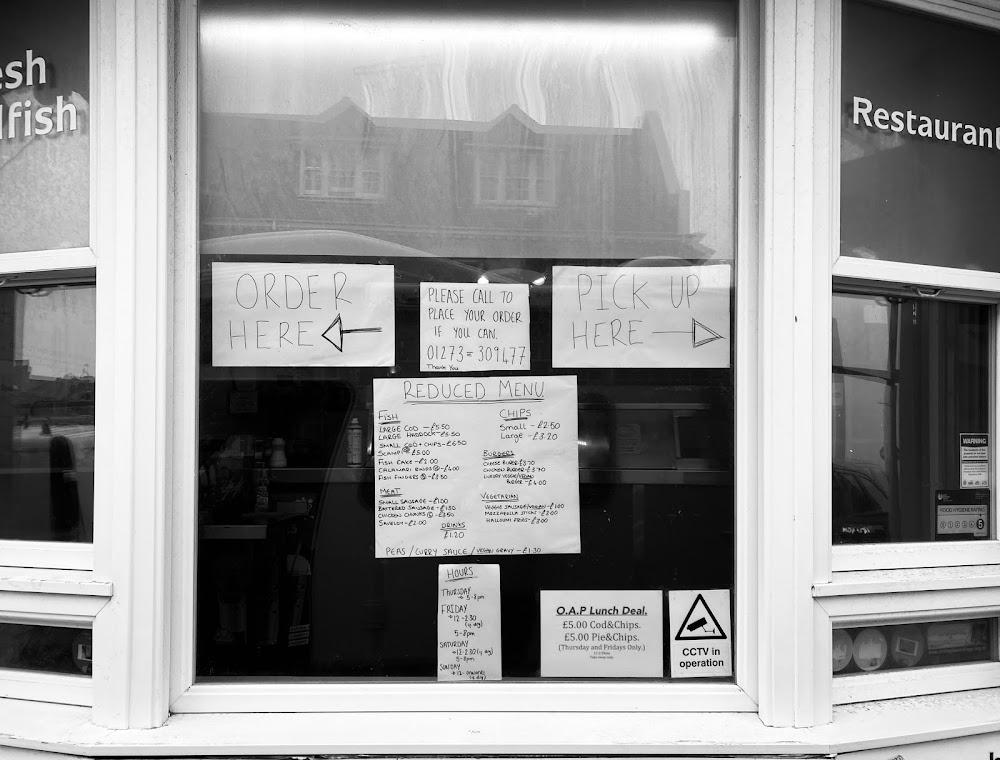 esh
lfish
Restaurant
ORDER
HERE
PLEASE CALL TO
PLACE YOUR ORDER
IF YOU CAN.
01273 = 309477
Thank You
PICK UP
HERE
REDUCED MENU
FISH
LARGE COD - £5.50
LARGE HADDOCK - £5.50
SMALL COD + CHIPS - £6.50
SCAMPI £5.00
FISH CAKE - £2.00
CALAMARI RINGS - £4.00
FISH FINGERS - £3.50
MEAT
SMALL SAUSAGE - £1.00
BATTERED SAUSAGE - £1.50
CHICKEN CHUNKS - £3.50
SAVELOY - £2.00
DRINKS
£1.20
CHIPS
Small - £2.50
Large - £3.20
BURGERS
CHEESE BURGER £3.70
CHICKEN BURGER - £3.70
LUXURY VEGGIE/VEGAN
BURGER - £4.00
VEGETARIAN
VEGGIE SAUSAGE/VEGAN - £1.00
MOZZARELLA STICKS - £3.00
HALLOUMI FRIES - £3.00
PEAS / CURRY SAUCE / VEGAN GRAVY - £1.30
HOURS
THURSDAY
5-8pm
FRIDAY
12-2:30
5-8pm
SATURDAY
12-2:30
5-8pm
SUNDAY
12-onwards
O.A.P Lunch Deal.
£5.00 Cod&Chips.
£5.00 Pie&Chips.
(Thursday and Fridays Only.)
CCTV in
operation
WARNING
FOOD HYGIENE RATING
0 1 2 3 4 5